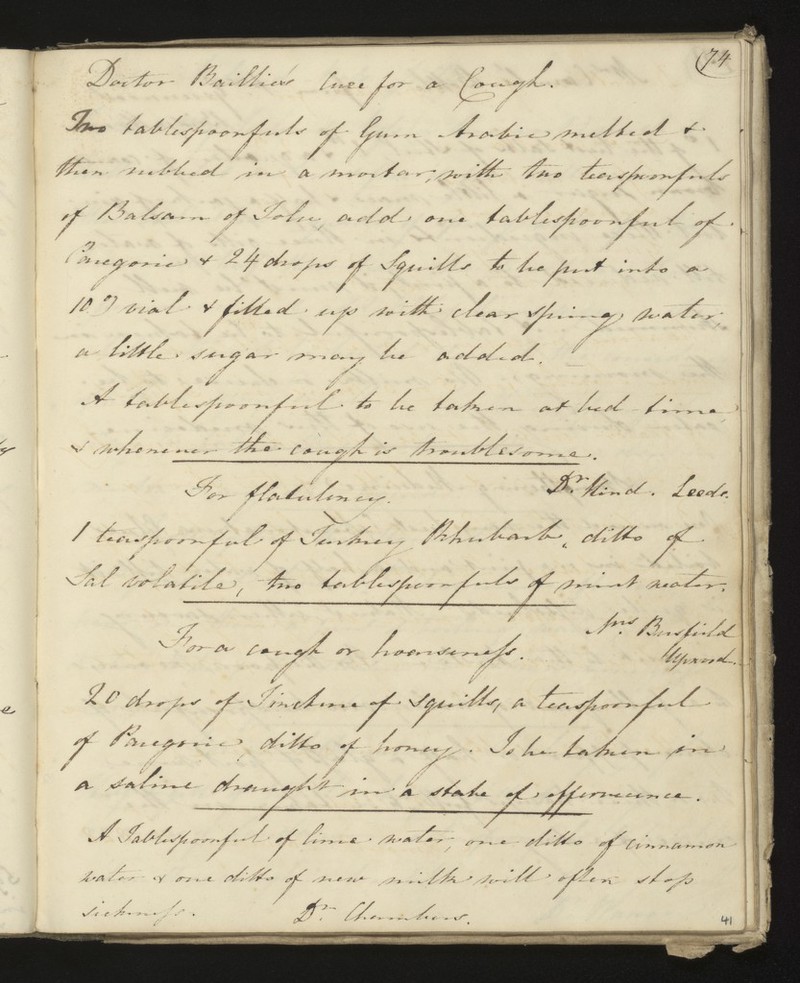 74
Doctor Baillie's cure for a Cough.
Two tablespoonfuls of Gum Arabic melted &
then rubbed in a mortar, with two teaspoonfuls
of Balsam of Tolu, add one tablespoonful of
Paregoric & 24 drops of Squills to be put into a
10 vial & filled up with clear spring water,
a little sugar may be added.
A tablespoonful to be taken at bed-time,
& whenever the cough is troublesome.
For flatulency. Dr. Hind. Leeds.
1 teaspoonful of Turkey Rhubarb, ditto of
Sal volatile, two tablespoonfuls of mint water.
For a cough or hoarseness. Mrs. Busfield
Upwood.
20 drops of Tincture of Squills, a teaspoonful
of Paregoric, ditto of honey. To be taken in
a saline draught in a state of effervecence.
A Tablespoonful of lime water, one ditto of cinnamon
water & one ditto of new milk will often stop
sickness. Dr. Chambers.
41